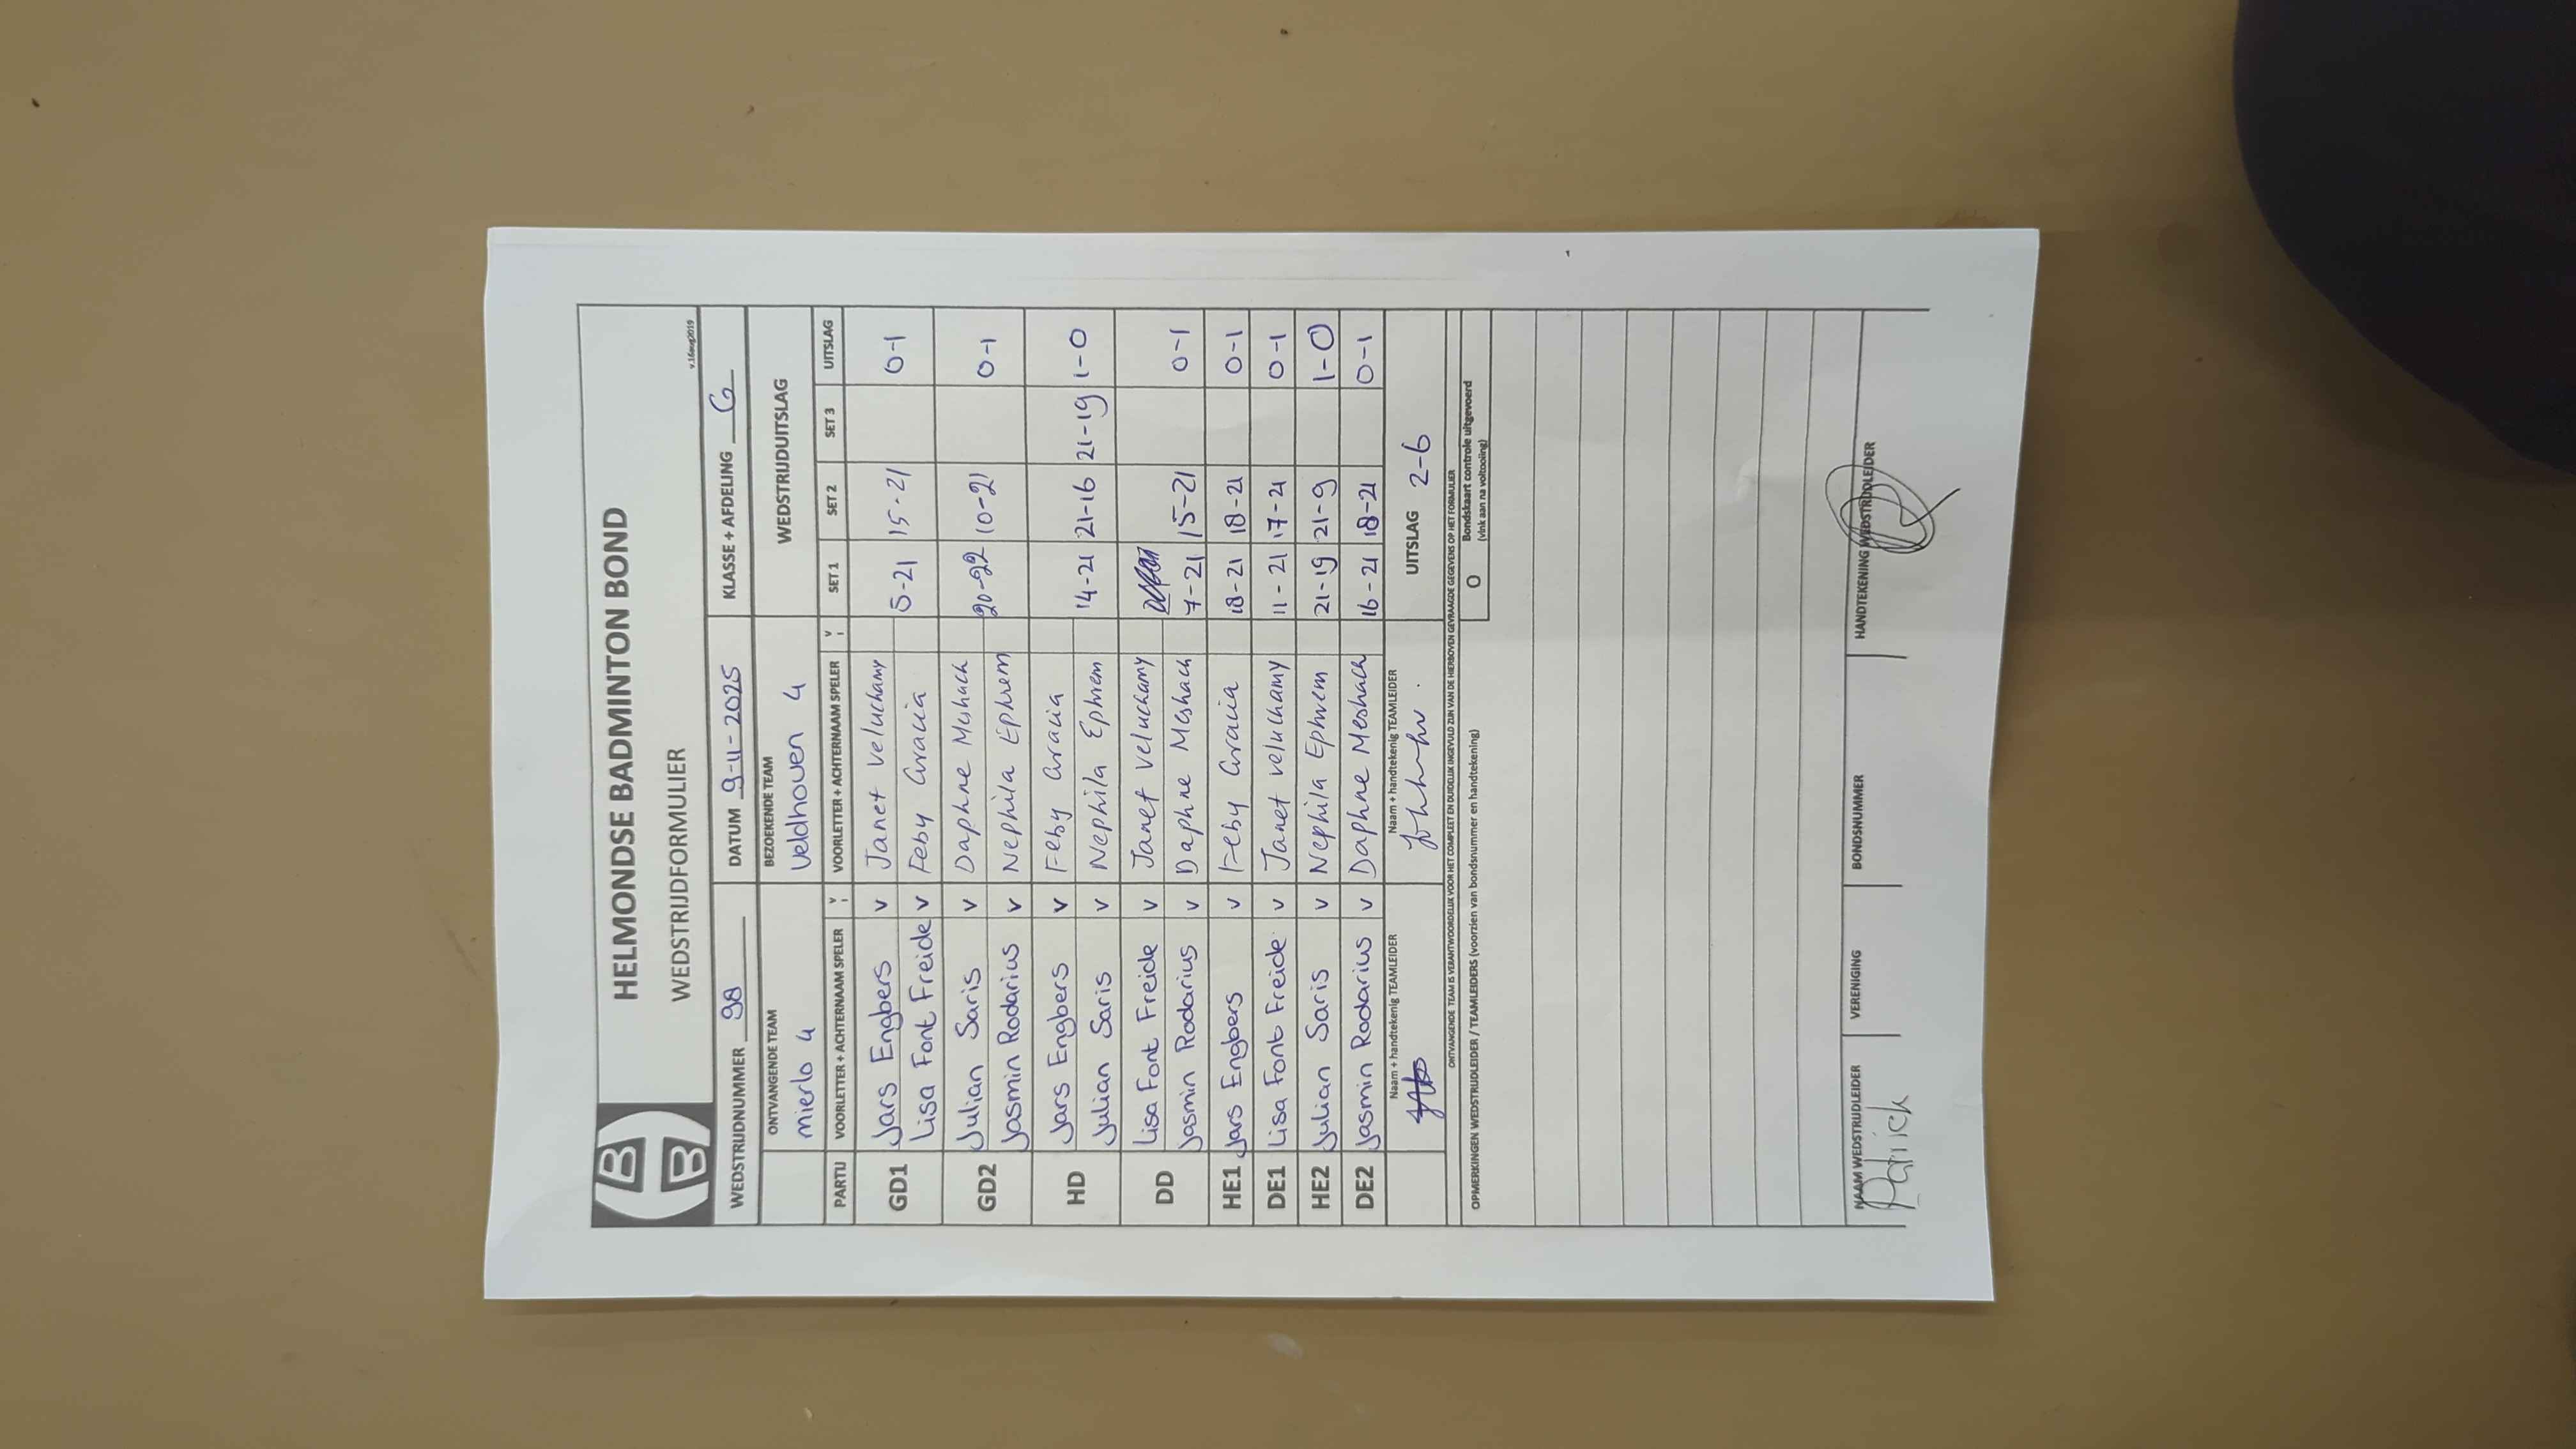 HELMONDSE BADMINTON BOND
WEDSTRIJDFORMULIER
v.16aug2019
WEDSTRIJDNUMMER 98 DATUM 9-11-2025 KLASSE + AFDELING G
ONTVANGENDE TEAM BEZOEKENDE TEAM WEDSTRIJDUITSLAG
mierlo 4 Veldhoven 4
PARTIJ VOORLETTER + ACHTERNAAM SPELER V VOORLETTER + ACHTERNAAM SPELER V SET 1 SET 2 SET 3 UITSLAG
GD1 Jars Engbers v Janet Veluchamy 5-21 15-21 0-1
Lisa Font Freide v Feby Gracia
GD2 Julian Saris v Daphne Meshach 20-22 10-21 0-1
Jasmin Rodarius v Nephila Ephrem
HD Jars Engbers v Feby Gracia 14-21 21-16 21-19 1-0
Julian Saris v Nephila Ephrem
DD Lisa Font Freide v Janet Veluchamy
Jasmin Rodarius v Daphne Meshach 7-21 15-21 0-1
HE1 Jars Engbers v Feby Gracia 18-21 18-21 0-1
DE1 Lisa Font Freide v Janet Veluchamy 11-21 17-21 0-1
HE2 Julian Saris v Nephila Ephrem 21-19 21-9 1-0
DE2 Jasmin Rodarius v Daphne Meshach 16-21 18-21 0-1
Naam + handtekenig TEAMLEIDER Naam + handtekenig TEAMLEIDER UITSLAG 2-6
ONTVANGENDE TEAM IS VERANTWOORDELIJK VOOR HET COMPLEET EN DUIDELIJK INGEVULD ZIJN VAN DE HIERBOVEN GEVRAAGDE GEGEVENS OP HET FORMULIER
OPMERKINGEN WEDSTRIJDLEIDER / TEAMLEIDERS (voorzien van bondsnummer en handtekening) O Bondskaart controle uitgevoerd
(vink aan na voltooiing)
NAAM WEDSTRIJDLEIDER VERENIGING BONDSNUMMER HANDTEKENING WEDSTRIJDLEIDER
Patrick